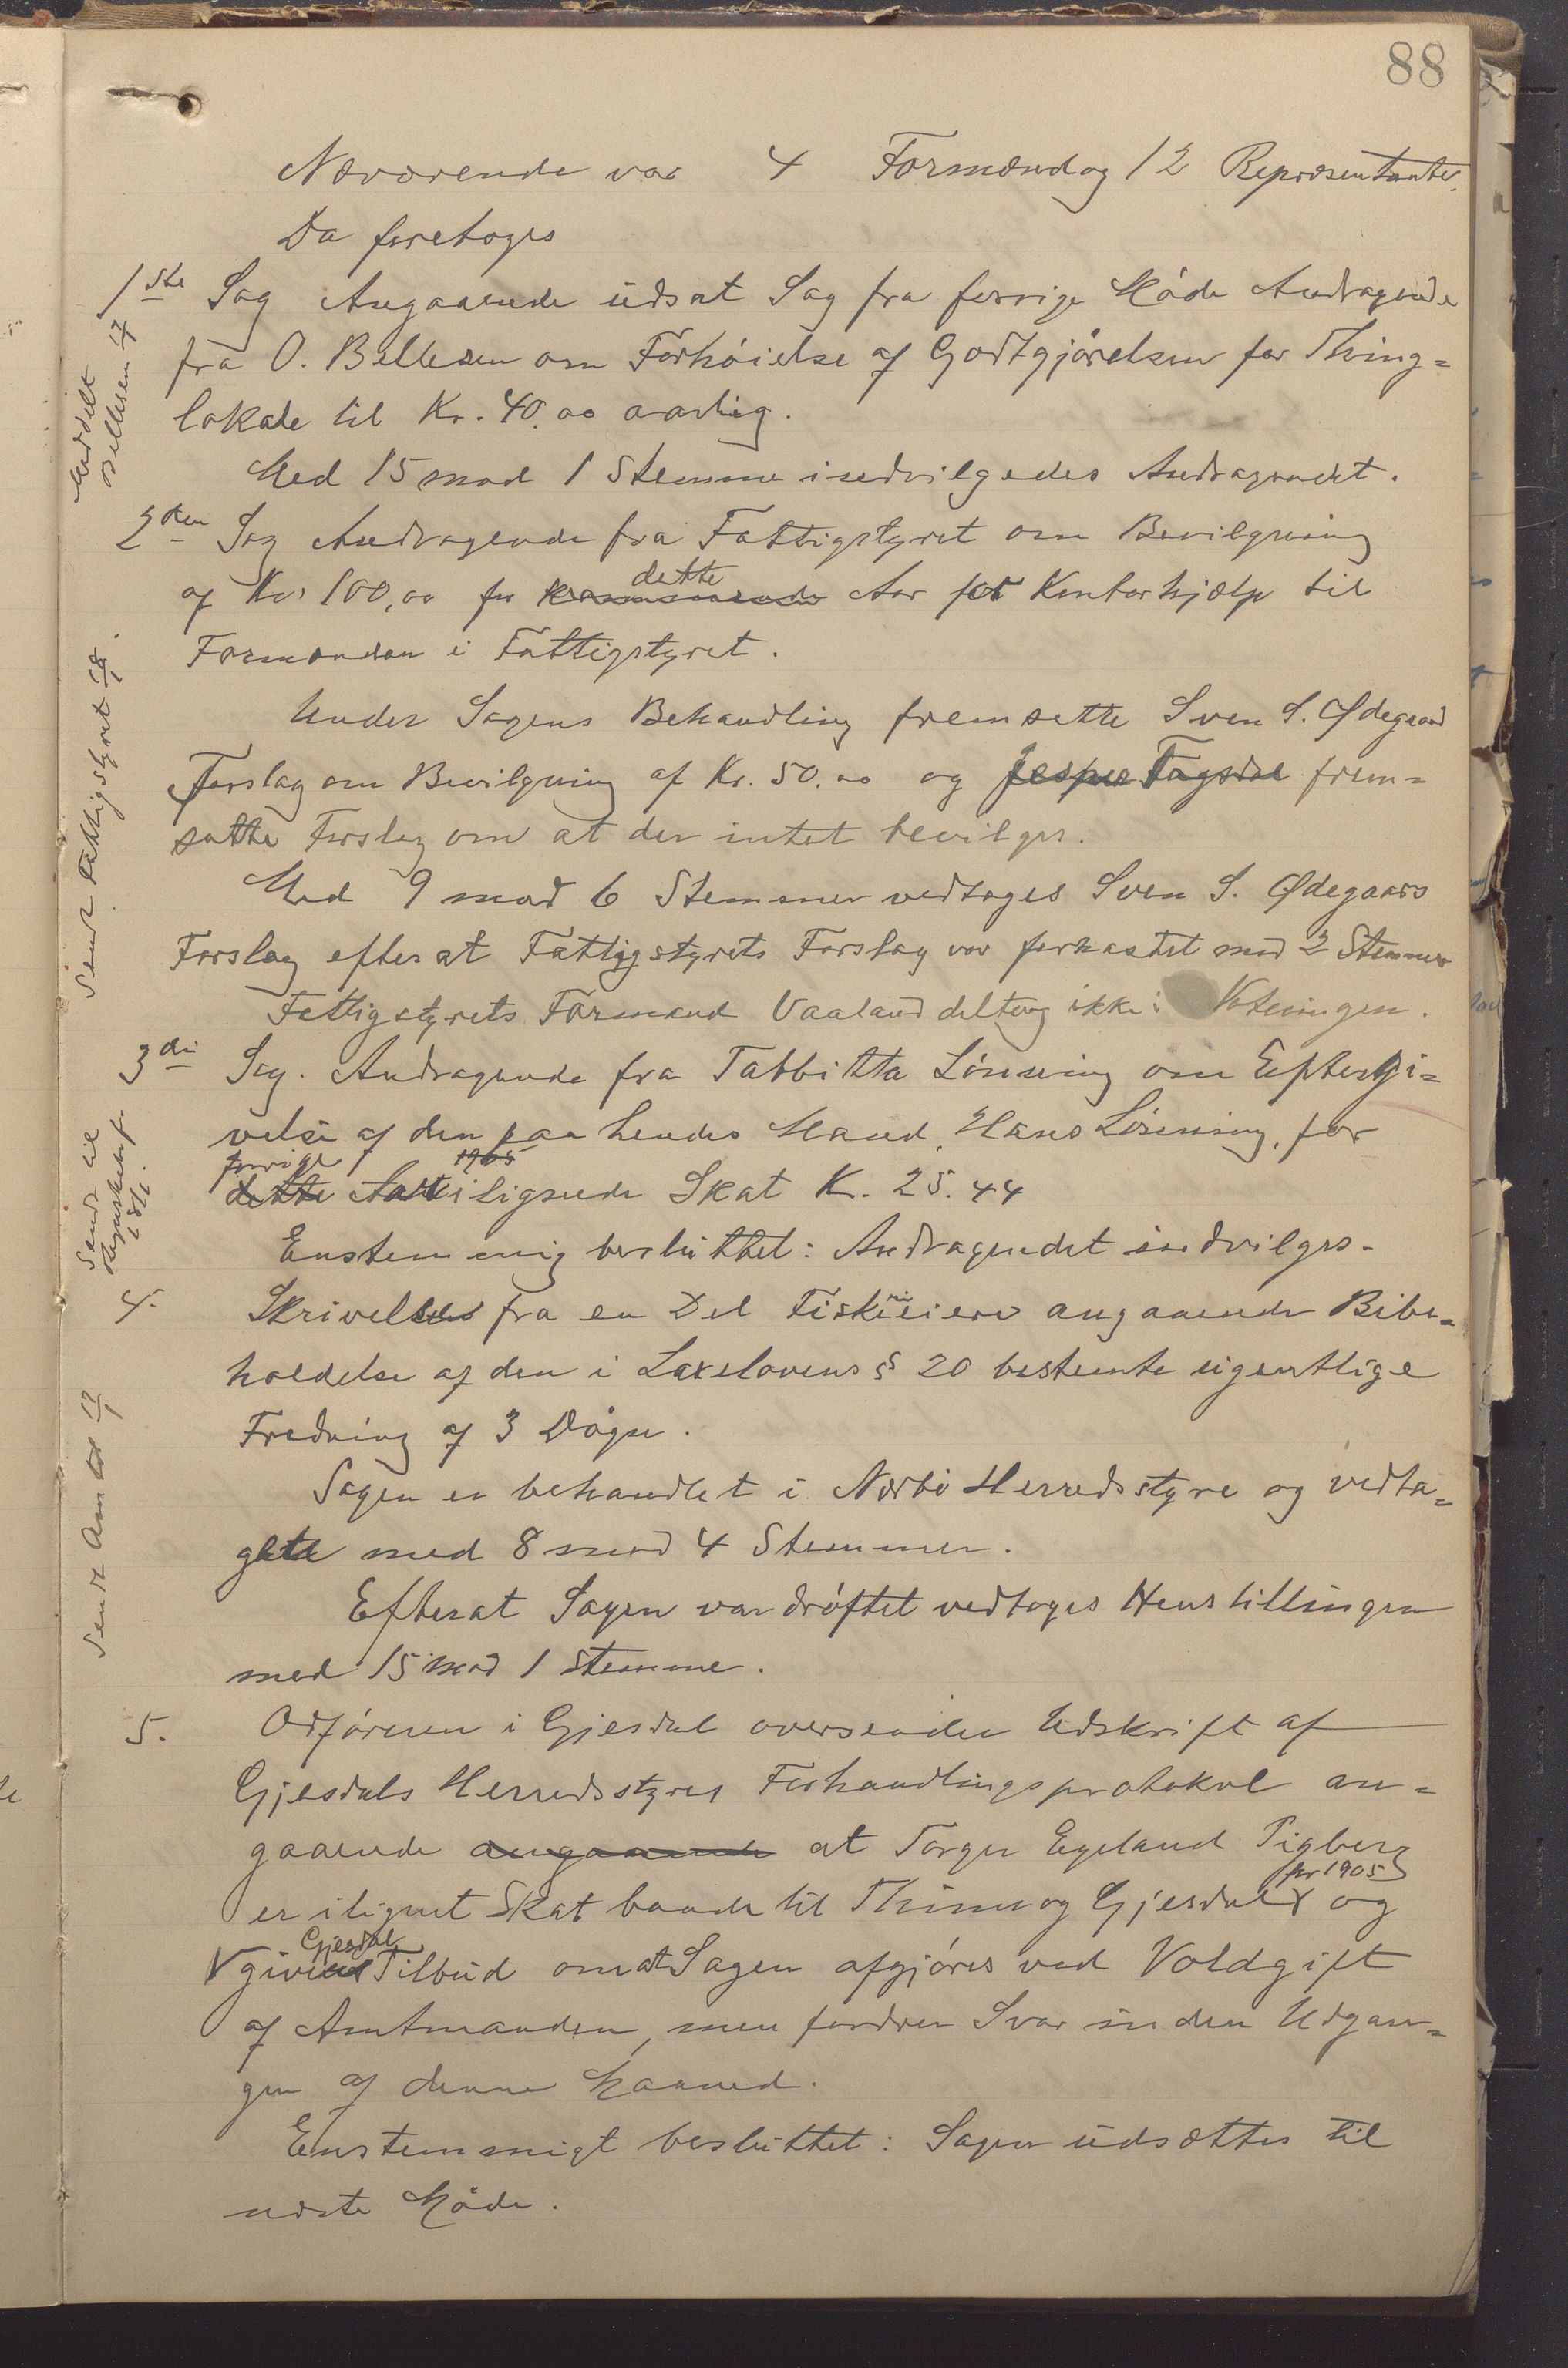 88
Nærværende var 4 Formænd og 12 Repræsentanter.
Da foretoges
1ste Sag Angaaende udsat Sag fra forrige Møde Andragende
fra O. Bellesen om Forhøielse af Godtgjørelsen for Thing=
lokale til Kr. 40.00 aarlig.
Meddelt
Bellesen
Med 15 mod 1 Stemme indvilgedes Andragendet.
2den Sag Andragende fra Fattigstyret om Bevilgning
af Kr. 100,00 for kommende dette Aar for Kontorhjælp til
Formanden i Fattigstyret.
Sendt Fattigstyret
Under Sagens Behandling fremsatte Sven S. Ødegaard
Forslag om Bevilgning af Kr. 50.00 og Jesper Fagsdal frem=
satte Forslag om at der intet bevilges.
Med 9 mod 6 Stemmer vedtoges Sven S. Ødegaards
Forslag efter at Fattigstyrets Forslag var forkastet mod 2 Stemmer
Fattigstyrets Formand Vaaland deltog ikke i Voteringen.
3die Sag. Andragende fra Tabbitta Lönning om Eftergi=
velse af den paa hendes Mand, Hans Lönning, for
forrige 1905
dette Aar ilignede Skat Kr. 25.44
Sendt til
Enstemmig besluttet: Andragendet indvilges.
4. Skrivelse fra en Del Fiskeieiere angaaende Bibe=
holdelse af den i Laxelovens § 20 bestemte ugentlige
Fredning af 3 Døgn.
Sendt Amtet
Sagen er behandlet i Nærbø Herredsstyre og vedta=
get med 8 mod 4 Stemmer.
Efterat Sagen var drøftet vedtoges Henstillingen
med 15 mod 1 Stemme.
5. Ordføreren i Gjesdal oversender Udskrift af
Gjesdals Herredsstyres Forhandlingsprotokol an=
gaaende angaaende at Torger Egeland Tigberg
er ilignet Skat baade til Thime og Gjesdal pr 1905 og
Gjesdal
giver Tilbud om at Sagen afgjøres ved Voldgift
af Amtmanden, men fordrer Svar inden Udgan=
gen af denne Maaned.
Enstemmigt besluttet: Sagen udsættes til
næste Møde.